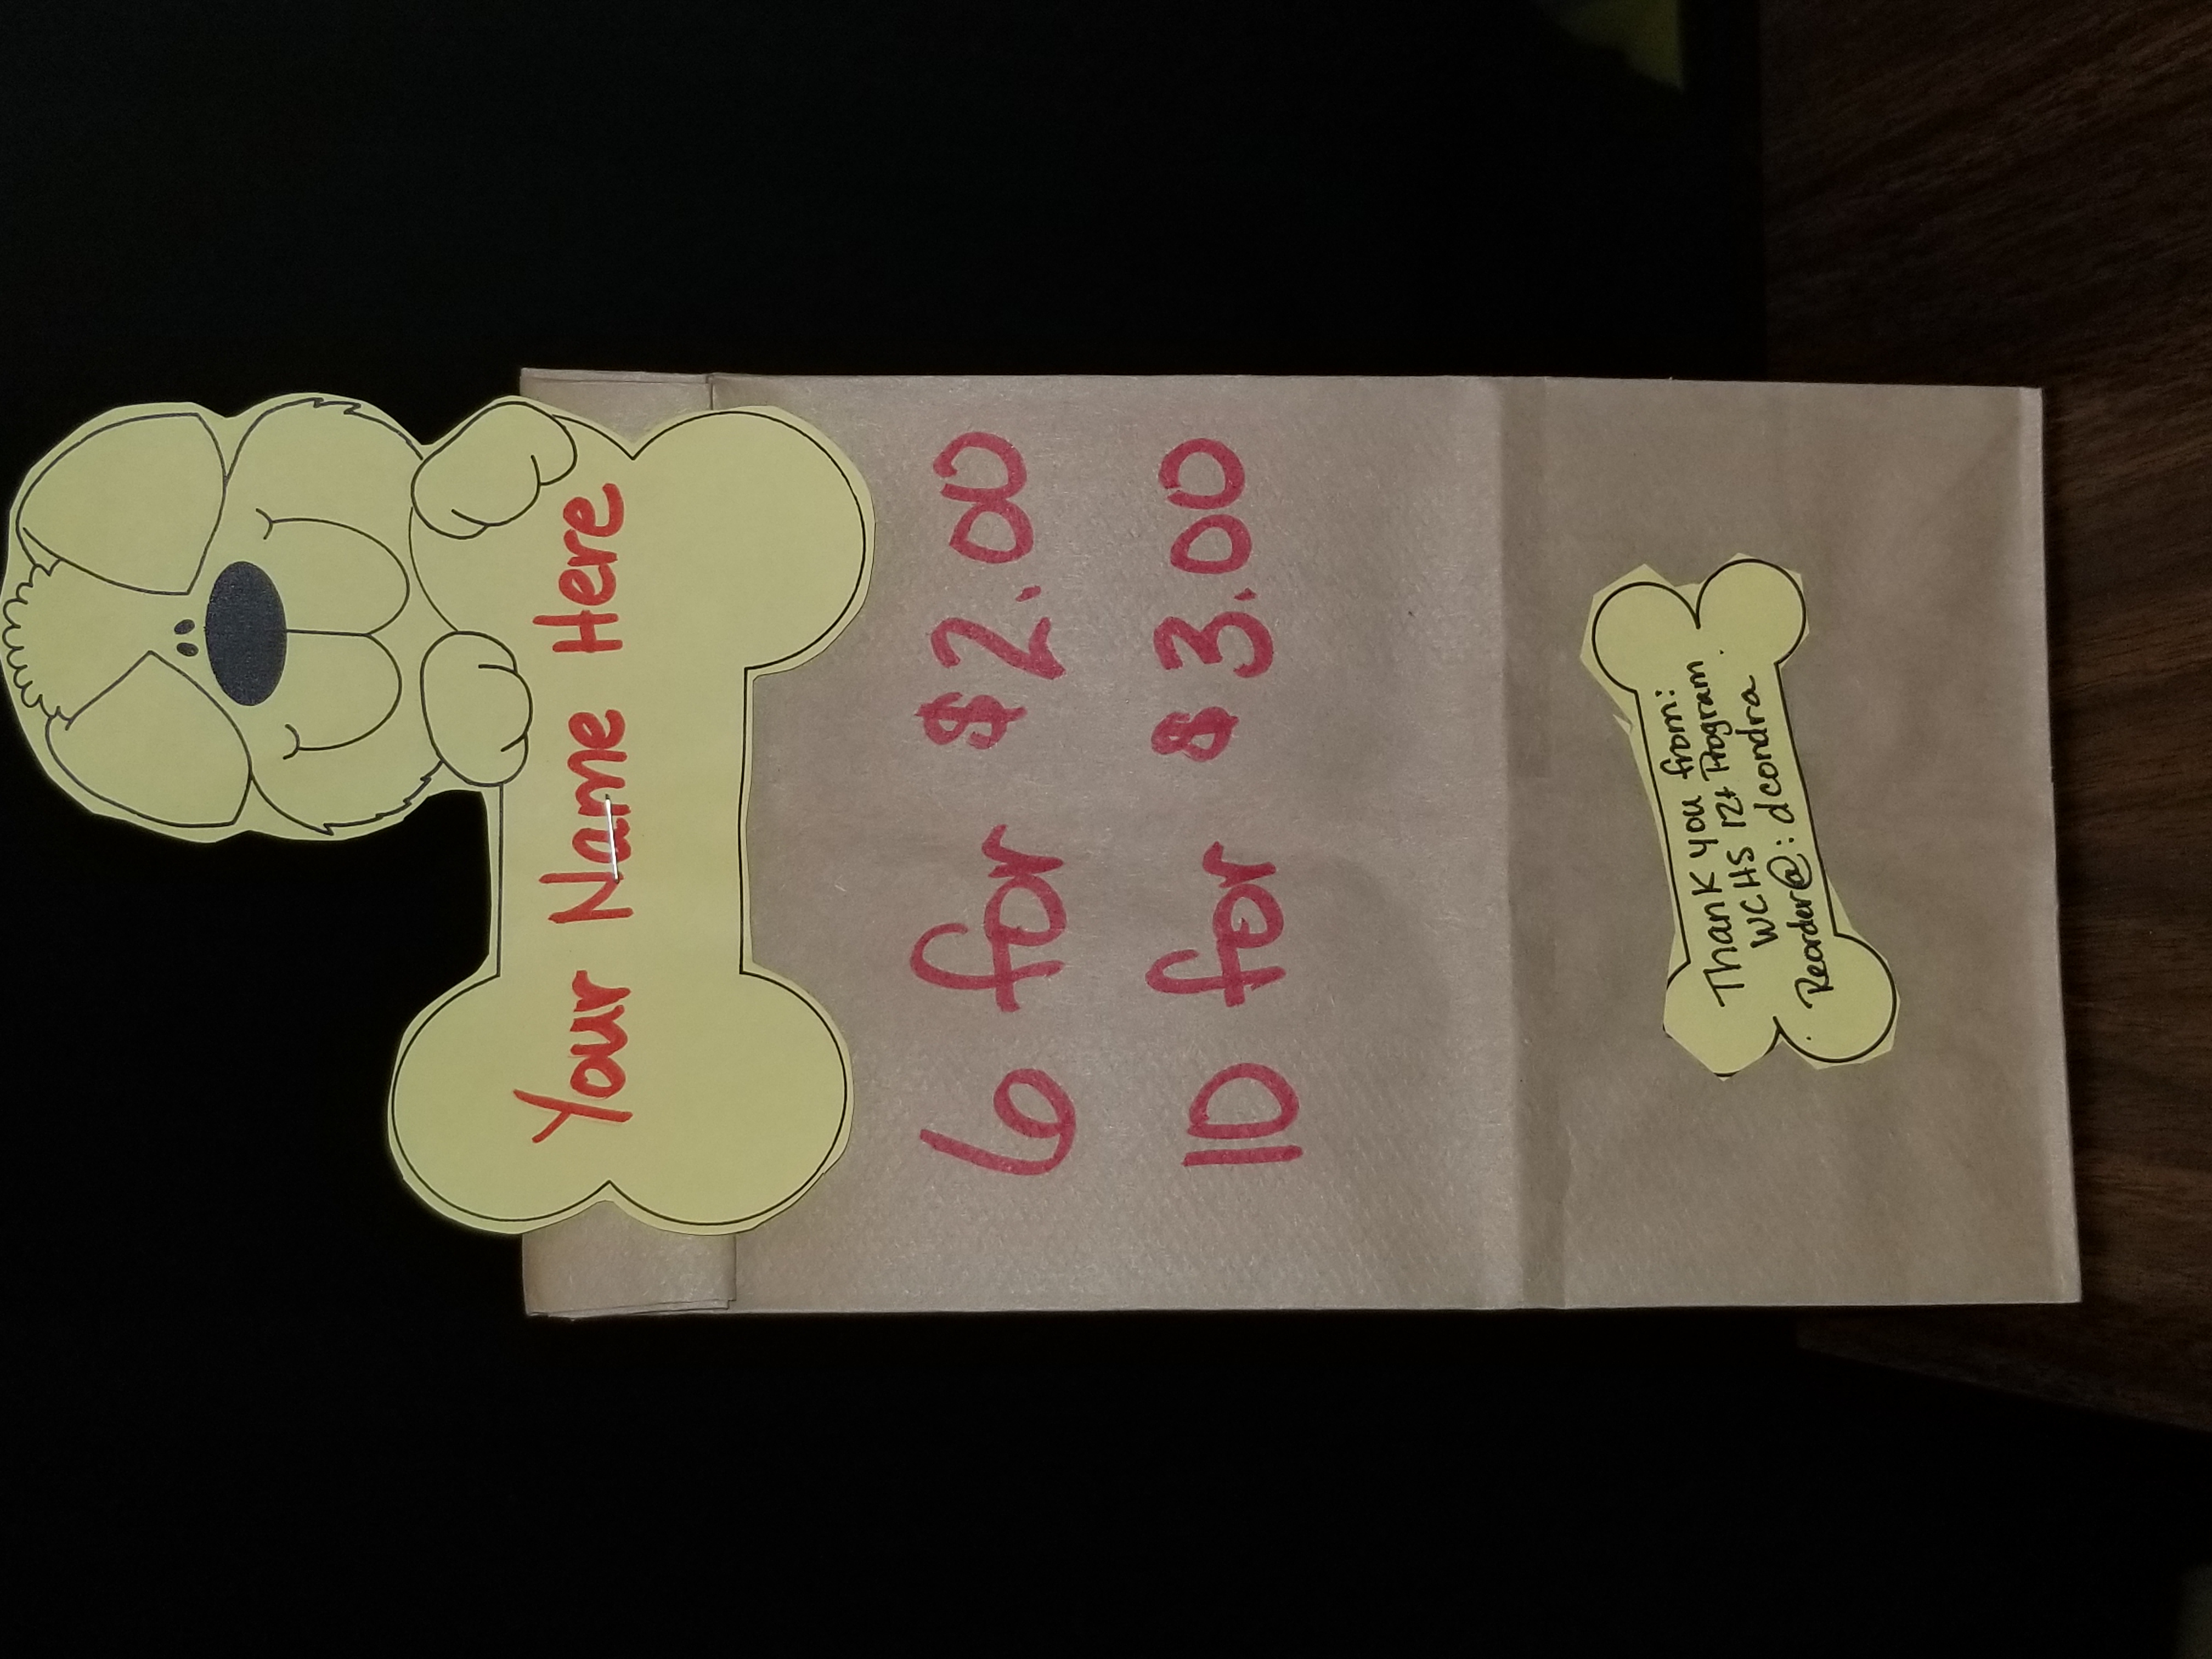 Your Name Here
6 for $2.00
10 for $3.00
Thank you from:
WCHS 12+ Program
Reorder@: dcondra